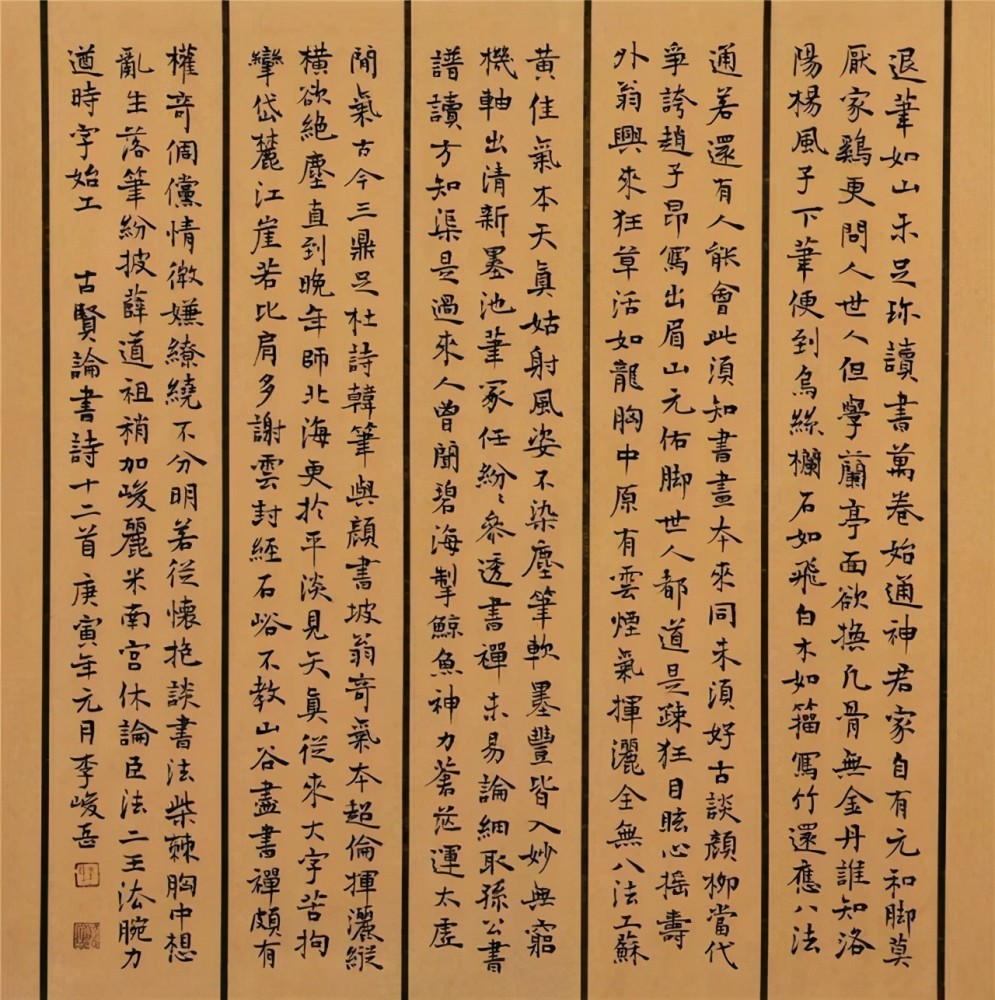 退筆如山未足珎讀書萬卷始通神君家自有元和脚莫
厭家鷄更問人世人但學蘭亭面欲換凡骨無金丹誰知洛
陽楊風子下筆便到烏絲欄石如飛白木如籀寫竹還應八法
通若還有人能會此須知書畫本來同未須好古談顏柳當代
爭誇趙子昂寫出眉山元佑脚世人都道是疎狂目眩心搖壽
外翁興來狂草活如龍胸中原有雲煙氣揮灑全無八法工蘇
黃佳氣本天真姑射風姿不染塵筆軟墨豐皆入妙無窮
機軸出清新墨池筆冢任紛〻參透書禪未易論細取孫公書
譜讀方知渠是過來人曾聞碧海掣鯨魚神力蒼茫運太虛
間氣古今三鼎足杜詩韓筆與顏書坡翁奇氣本超倫揮灑縱
橫欲絕塵直到晚年師北海更於平淡見天真從來大字苦拘
攣岱麓江崖若比肩多謝雲封經石峪不教山谷盡書禪頗有
權奇倜儻情微嫌繚繞不分明若從懷抱談書法柴棘胸中想
亂生落筆紛披薛道祖稍加峻麗米南宮休論臣法二王法腕力
遒時字始工 古賢論書詩十二首庚寅年元月李峻岳